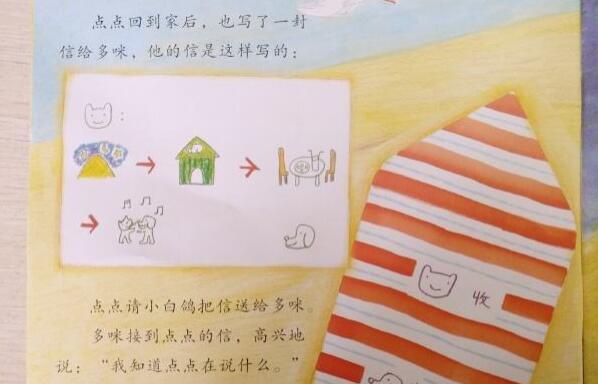 点点回到家后，也写了一封
信给多咪，他的信是这样写的：
：
收
点点请小白鸽把信送给多咪。
多咪接到点点的信，高兴地
说：“我知道点点在说什么。”